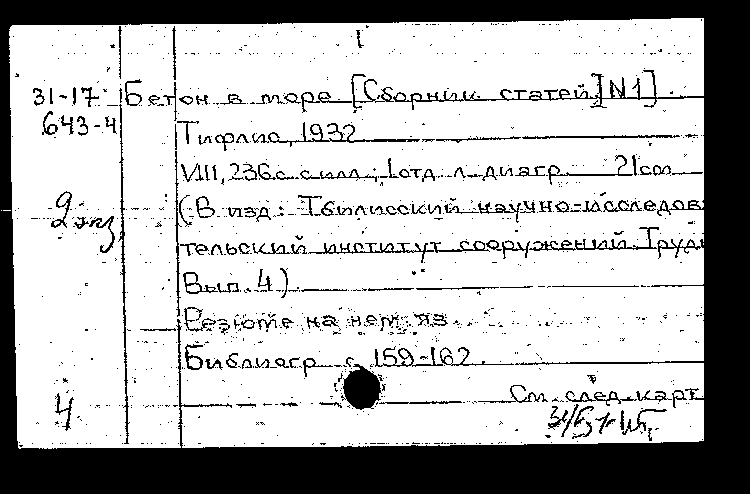 I
31-17 Бетон в море [Сборник статей.] N1].
643-4 Тифлис, 1932
VIII, 236 с. с илл.; 1 отд. л. диагр. 21 cm
2 экз (В изд: Тбилисский научно-исследов
тельский институт сооружений. Труды
Вып. 4).
Резюме на нем. яз.
Библиогр. с. 159-162.
4 См. след. карт